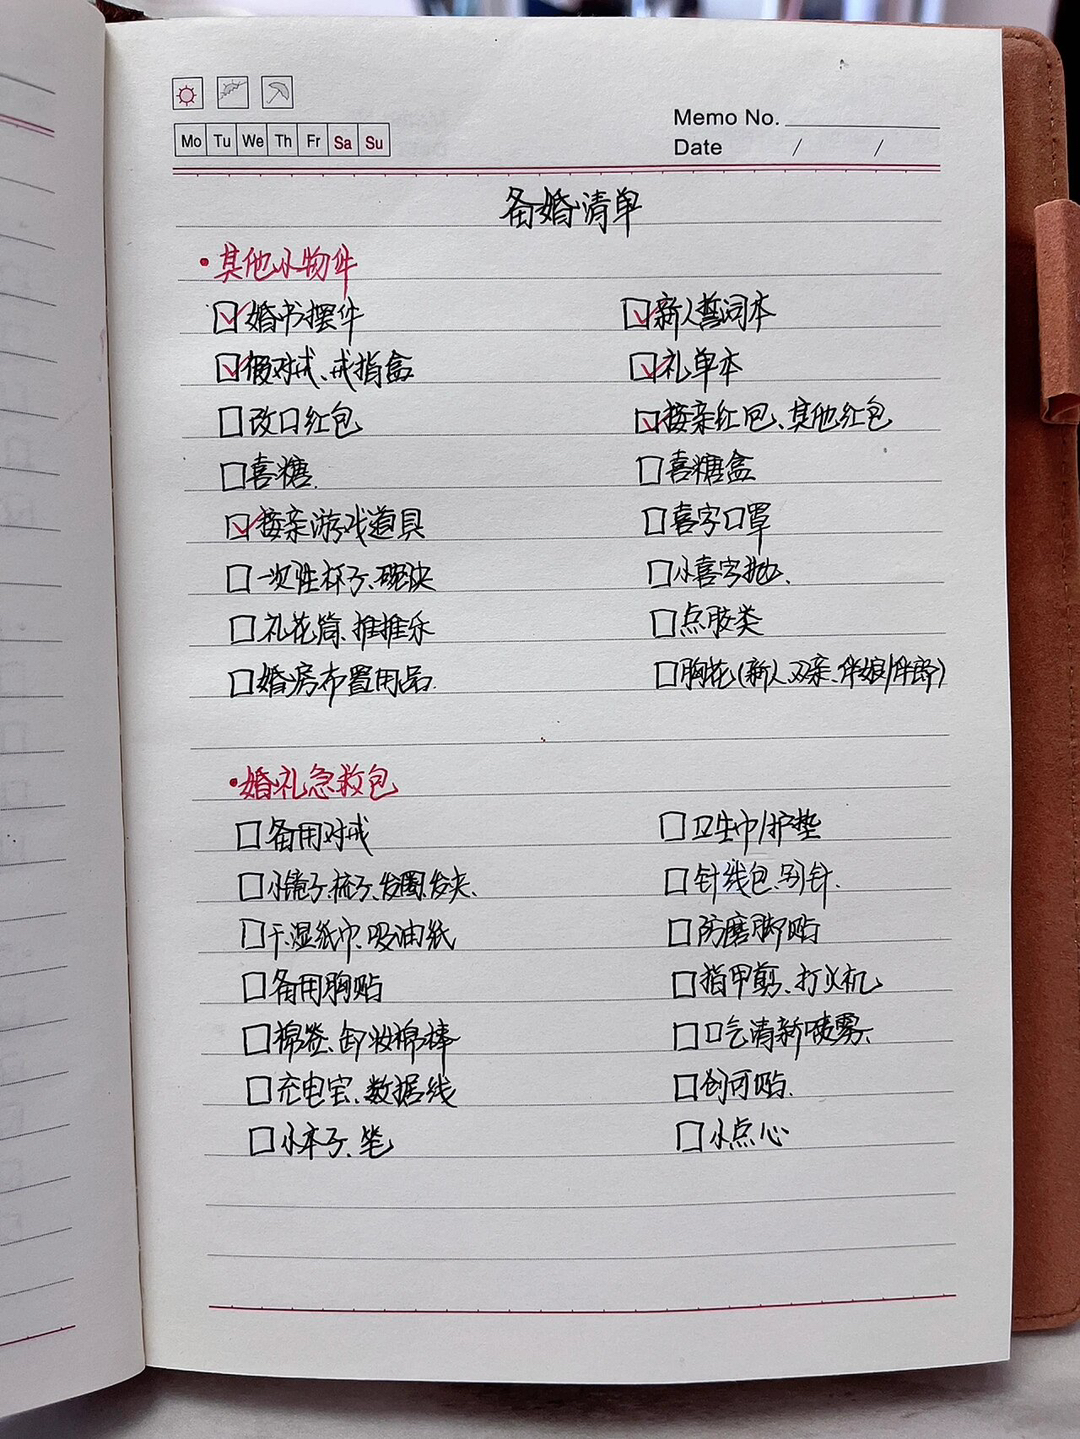 Mo Tu We Th Fr Sa Su
Memo No.
Date / /
备婚清单
·其他小物件
☑婚书摆件 ☑新人誓词本
☑假对戒、戒指盒 ☑礼单本
☐改口红包 ☑接亲红包、其他红包
☐喜糖. ☐喜糖盒
☑接亲游戏道具 ☐喜字口罩
☐一次性杯子、碗筷 ☐小喜字抛、
☐礼花筒、推推乐 ☐点胶类
☐婚房布置用品. ☐胸花(新人、双亲、伴娘/伴郎)
·婚礼急救包
☐备用对戒 ☐卫生巾/护垫
☐小镜子、梳子、发圈、发夹、 ☐针线包、别针.
☐干、湿纸巾、吸油纸 ☐防磨脚贴
☐备用胸贴 ☐指甲剪、打火机
☐棉签、卸妆棉棒 ☐口气清新喷雾、
☐充电宝、数据线 ☐创可贴.
☐小本子、笔 ☐小点心